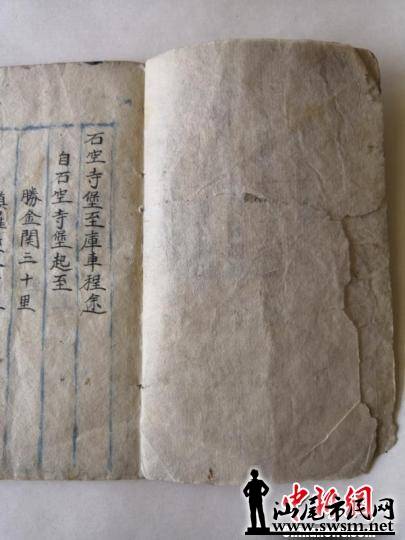 石空寺堡至庫車程途
自石空寺堡起至
勝金関三十里
中新网
汕尾市网
www.swsm.net